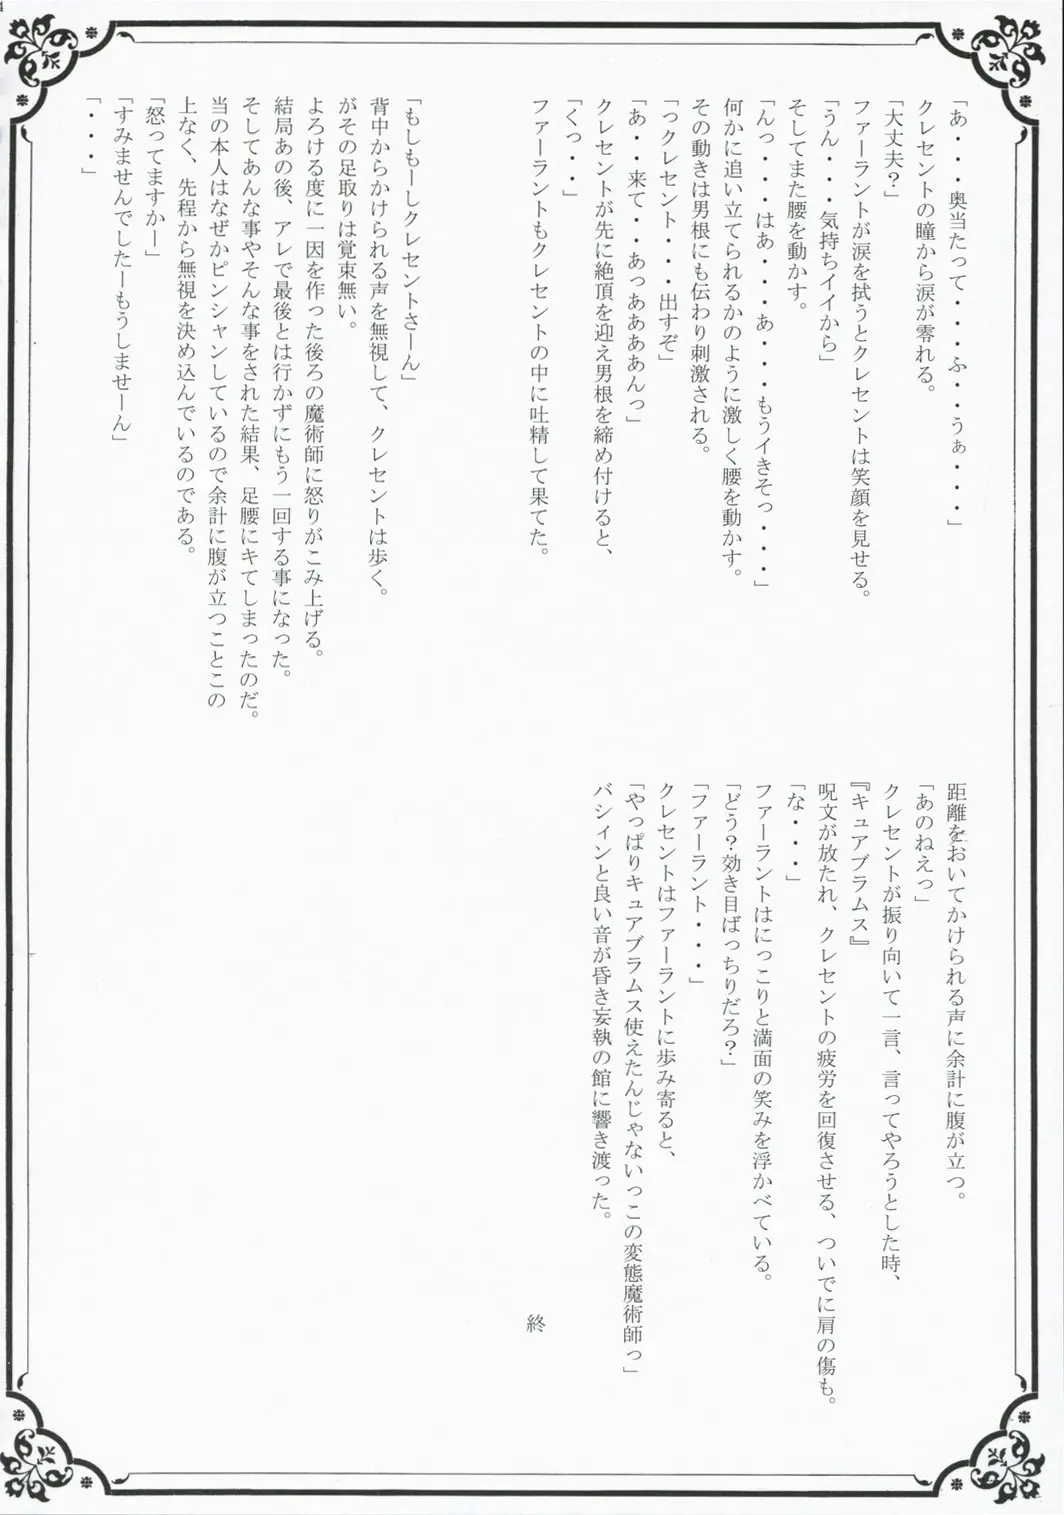 「あ・・・奥当たって・・・ふ・・うぁ・・・」
クレセントの瞳から涙が零れる。
「大丈夫？」
ファーラントが涙を拭うとクレセントは笑顔を見せる。
「うん・・・気持ちイイから」
そしてまた腰を動かす。
「んっ・・・はあ・・・あ・・・もうイきそっ・・・」
何かに追い立てられるかのように激しく腰を動かす。
その動きは男根にも伝わり刺激される。
「っクレセント・・・出すぞ」
「あ・・来て・・あっああああんっ」
クレセントが先に絶頂を迎え男根を締め付けると、
「くっ・・」
ファーラントもクレセントの中に吐精して果てた。
「もしもーしクレセントさーん」
背中からかけられる声を無視して、クレセントは歩く。
がその足取りは覚束無い。
よろける度に一因を作った後ろの魔術師に怒りがこみ上げる。
結局あの後、アレで最後とは行かずにもう一回する事になった。
そしてあんな事やそんな事をされた結果、足腰にキてしまったのだ。
当の本人はなぜかピンシャンしているので余計に腹が立つことこの
上なく、先程から無視を決め込んでいるのである。
「怒ってますかー」
「すみませんでしたーもうしませーん」
「・・・」
距離をおいてかけられる声に余計に腹が立つ。
「あのねえっ」
クレセントが振り向いて一言、言ってやろうとした時、
『キュアプラムス』
呪文が放たれ、クレセントの疲労を回復させる、ついでに肩の傷も。
「な・・・」
ファーラントはにっこりと満面の笑みを浮かべている。
「どう？効き目ばっちりだろ？」
「ファーラント・・・」
クレセントはファーラントに歩み寄ると、
「やっぱりキュアプラムス使えたんじゃないっこの変態魔術師っ」
バシィンと良い音が昏き妄執の館に響き渡った。
終